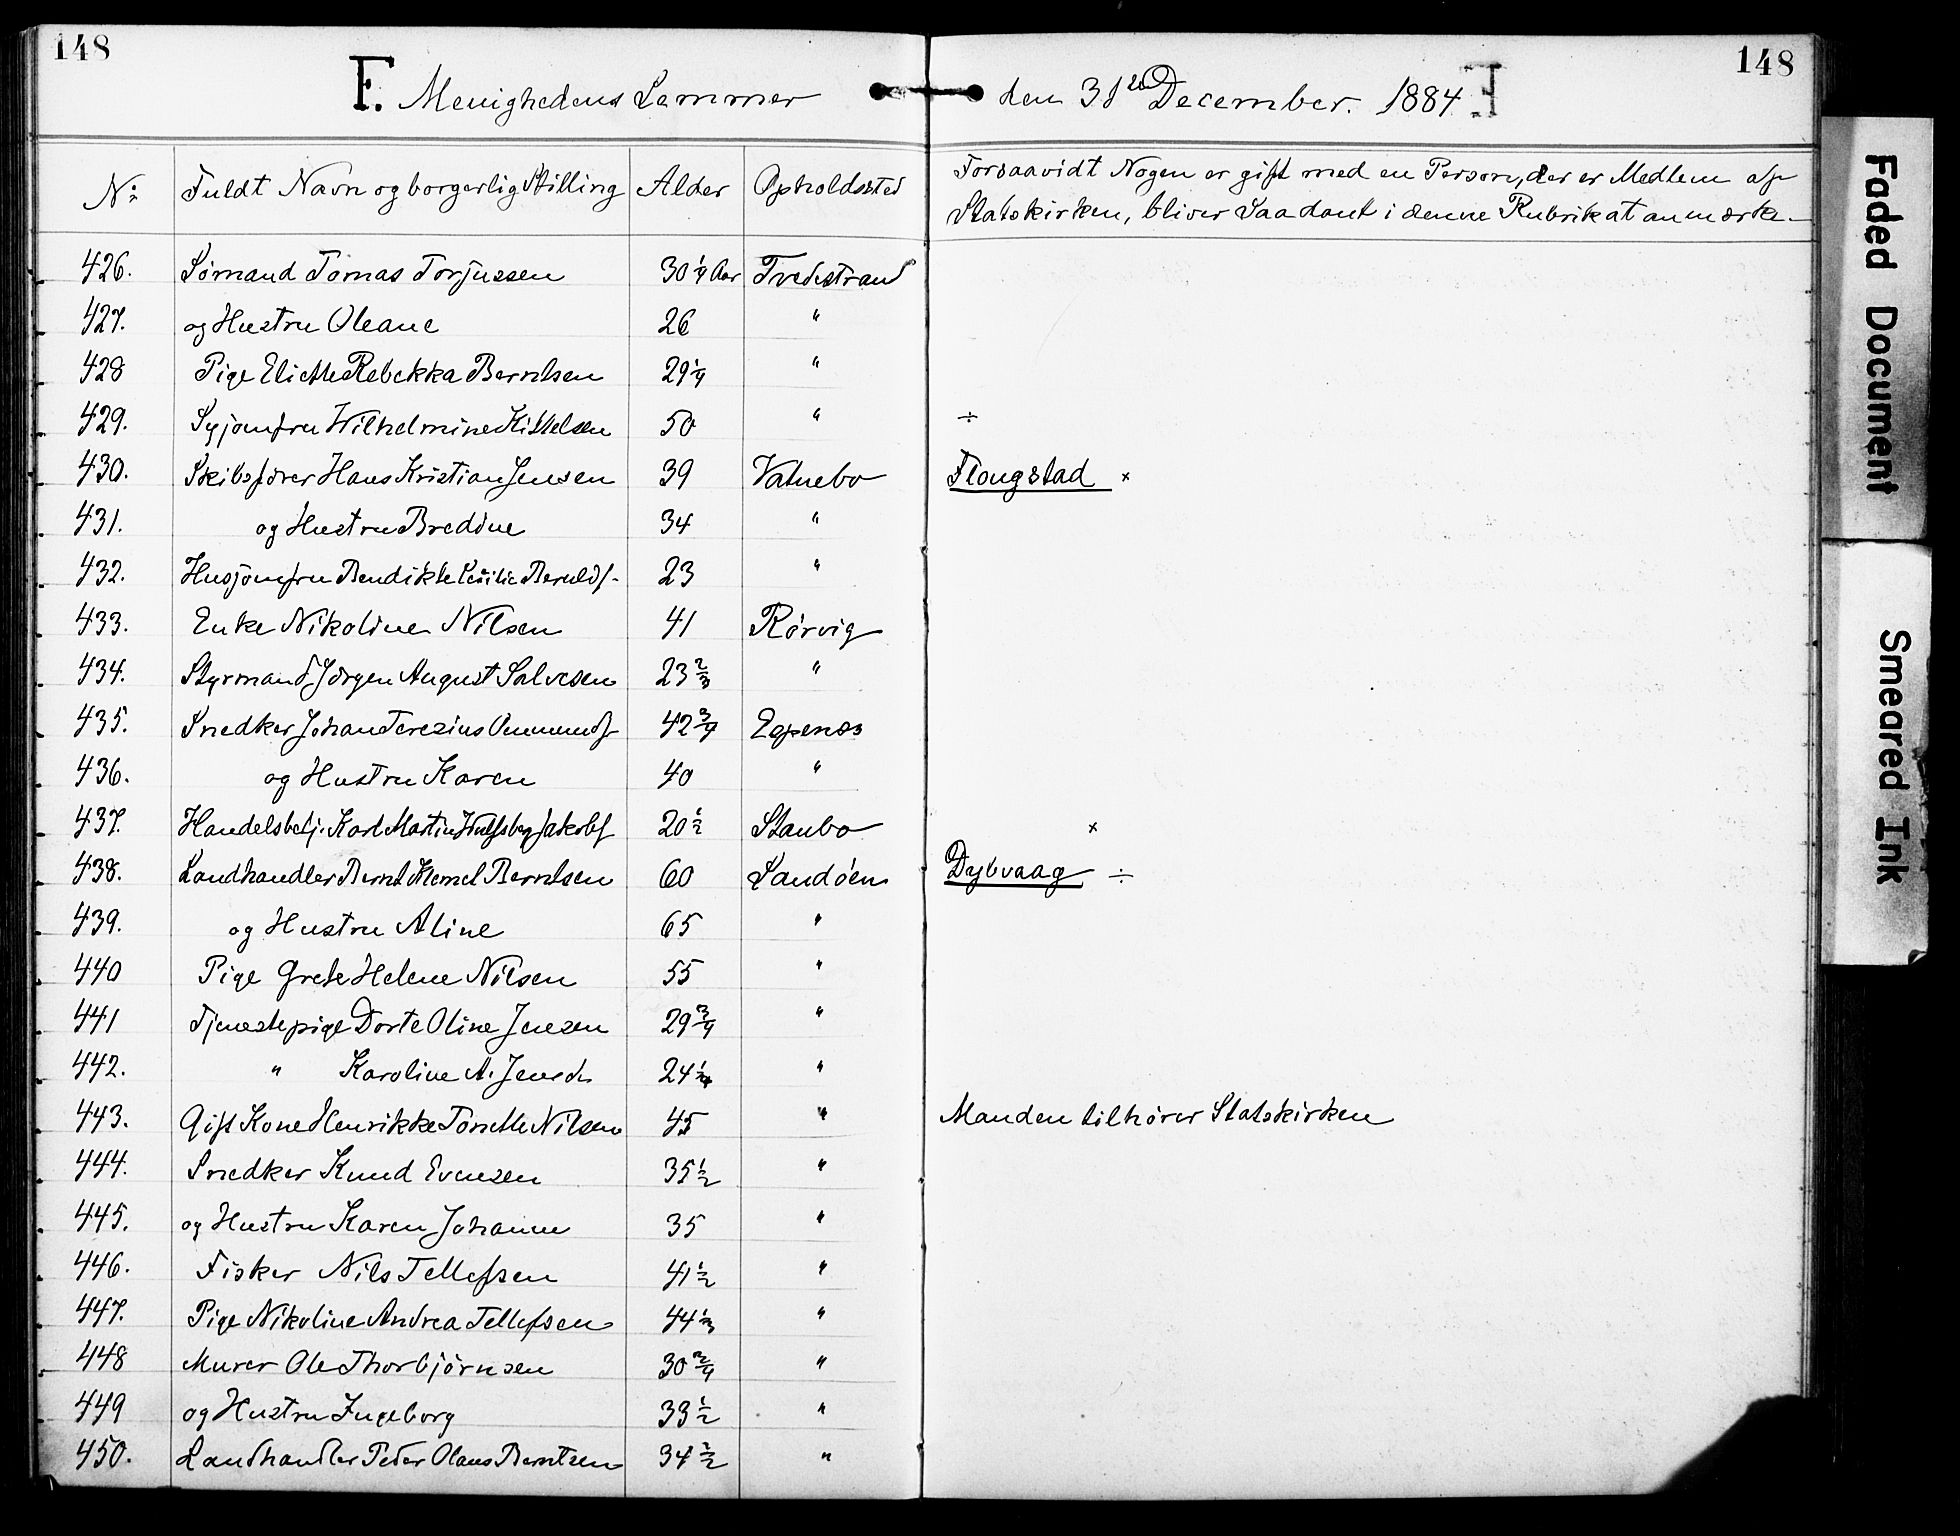 148
148
F. Menighedens Lemmer den 31te December. 1884
No: Fuldt Navn og borgerlig Stilling Alder Opholdssted Forsaavidt Nogen er gift med en Person, der er Medlem af
Statskirken, bliver Saadant i denne Rubrik at anmærke.
426. Sømand Tomas Torjussen 30 1/4 Aar Tvedestrand
427. og Hustru Oleane 26 "
428 Pige Elicthe Rebekka Berntsen 29 1/4 "
429. Syjomfru Wilhelmine Kittelsen 50 " ÷
430. Skibsfører Hans Kristian Jensen 39 Vatnebo Flougstad ×
431. og Hustru Bredine 34 "
432. Husjomfru Bendikte Cesilie Berntdf. 23 "
433. Enke Nikoline Nilsen 41 Rørvig
434. Styrmand Jørgen August Salvesen 23 2/3 "
435. Snedker Johan Terezius 42 3/4 Egenæs
436. og Hustru Karen 40 "
437. Handelsbetj. Karl Martin Jakobs 20 1/2 Staubo ×
438. Landhandler Bernt Klemet Berntsen 60 Sandøen Dybvaag ÷
439. og Hustru Aline 65 "
440 Pige Grete Helene Nilsen 55 "
441 Tjenestepige Dorte Oline Jensen 29 3/4 "
442. " Karoline A. Jensen 24 1/4 "
443. Gift Kone Henrikke Tonette Nilsen 45 " Manden tilhører Statskirken
444. Snedker Knud Evensen 35 1/2 "
445. og Hustru Karen Johanne 35 "
446. Fisker Nils Tellefsen 41 1/2 "
447. Pige Nikoline Andrea Tellefsen 44 1/3 "
448 Murer Ole Thorbjørnsen 30 3/4 "
449 og Hustru Ingeborg 33 1/2 "
450. Landhandler Peder Olaus Berntsen 34 1/2 "
Faded Document
Smeared Ink